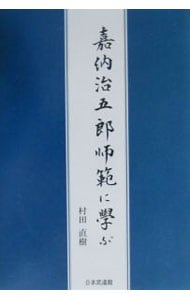 嘉納治五郎師範に學ぶ
村田 直樹
日本武道館